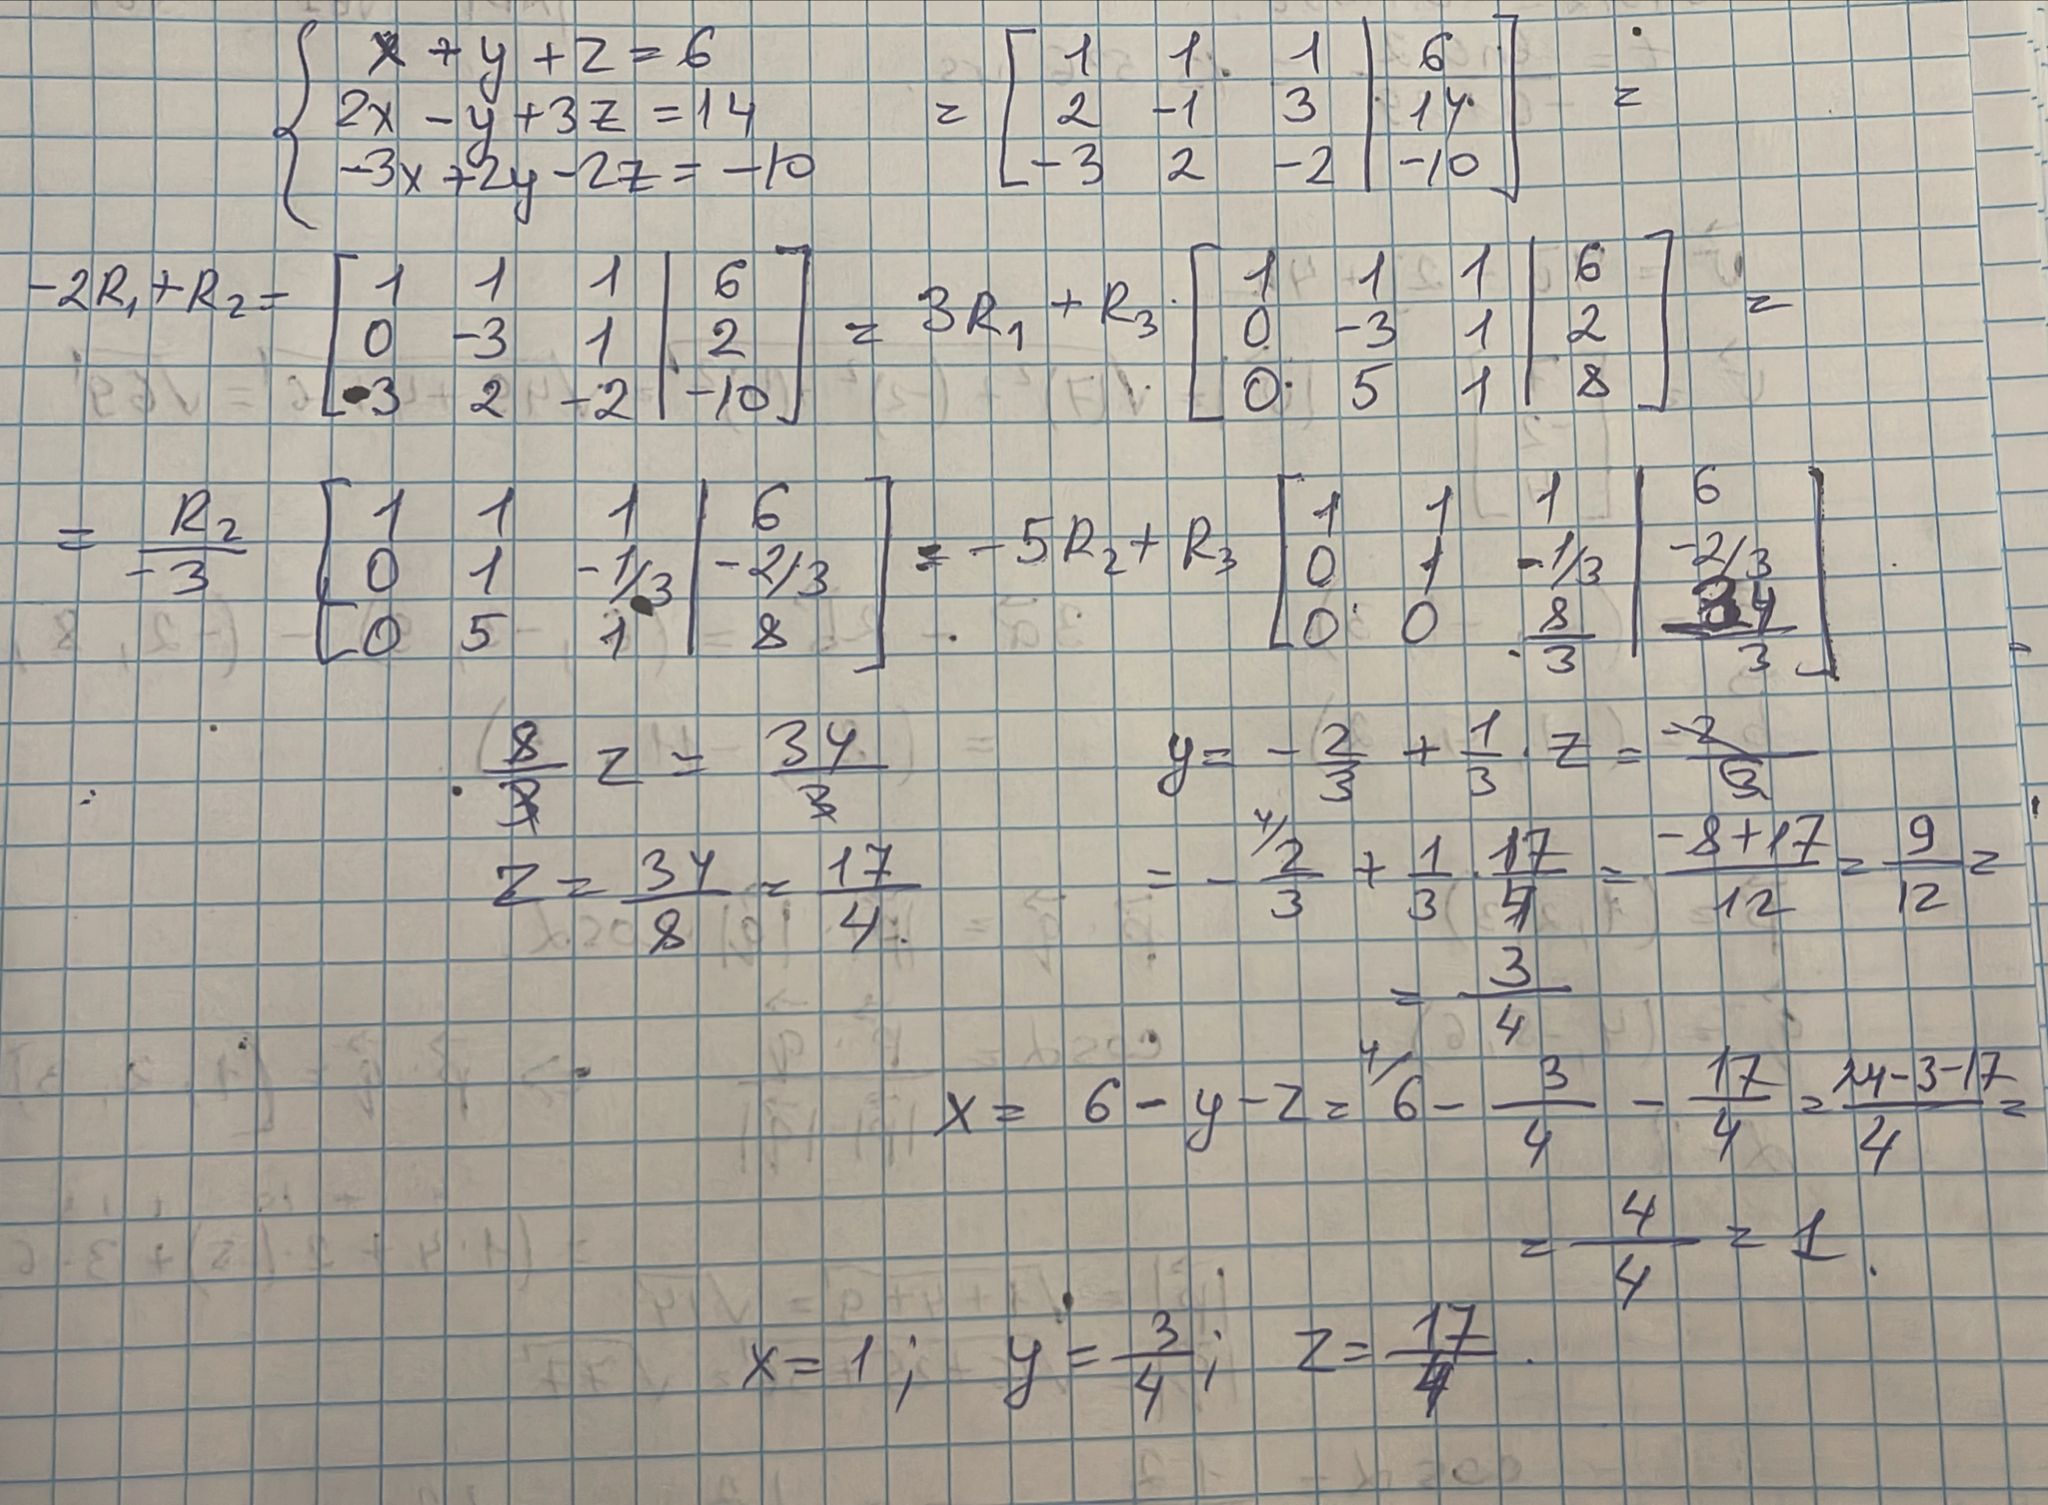 { x + y + z = 6
2x - y + 3z = 14
-3x + 2y - 2z = -10
= [ 1 1 1 | 6
2 -1 3 | 14
-3 2 -2 | -10 ] =
-2R₁ + R₂ = [ 1 1 1 | 6
0 -3 1 | 2
-3 2 -2 | -10 ]
= 3R₁ + R₃ [ 1 1 1 | 6
0 -3 1 | 2
0 5 1 | 8 ] =
= R₂/-3 [ 1 1 1 | 6
0 1 -1/3 | -2/3
0 5 1 | 8 ]
= -5R₂ + R₃ [ 1 1 1 | 6
0 1 -1/3 | -2/3
0 0 8/3 | 34/3 ]
8/3 z = 34/3
z = 34/8 = 17/4
y = -2/3 + 1/3 · z = -2/3
= - 4/ 2/3 + 1/3 · 17/4 = (-8+17)/12 = 9/12 =
= 3/4
x = 6 - y - z = 4/ 6 - 3/4 - 17/4 = (24-3-17)/4 =
= 4/4 = 1.
x = 1; y = 3/4; z = 17/4.